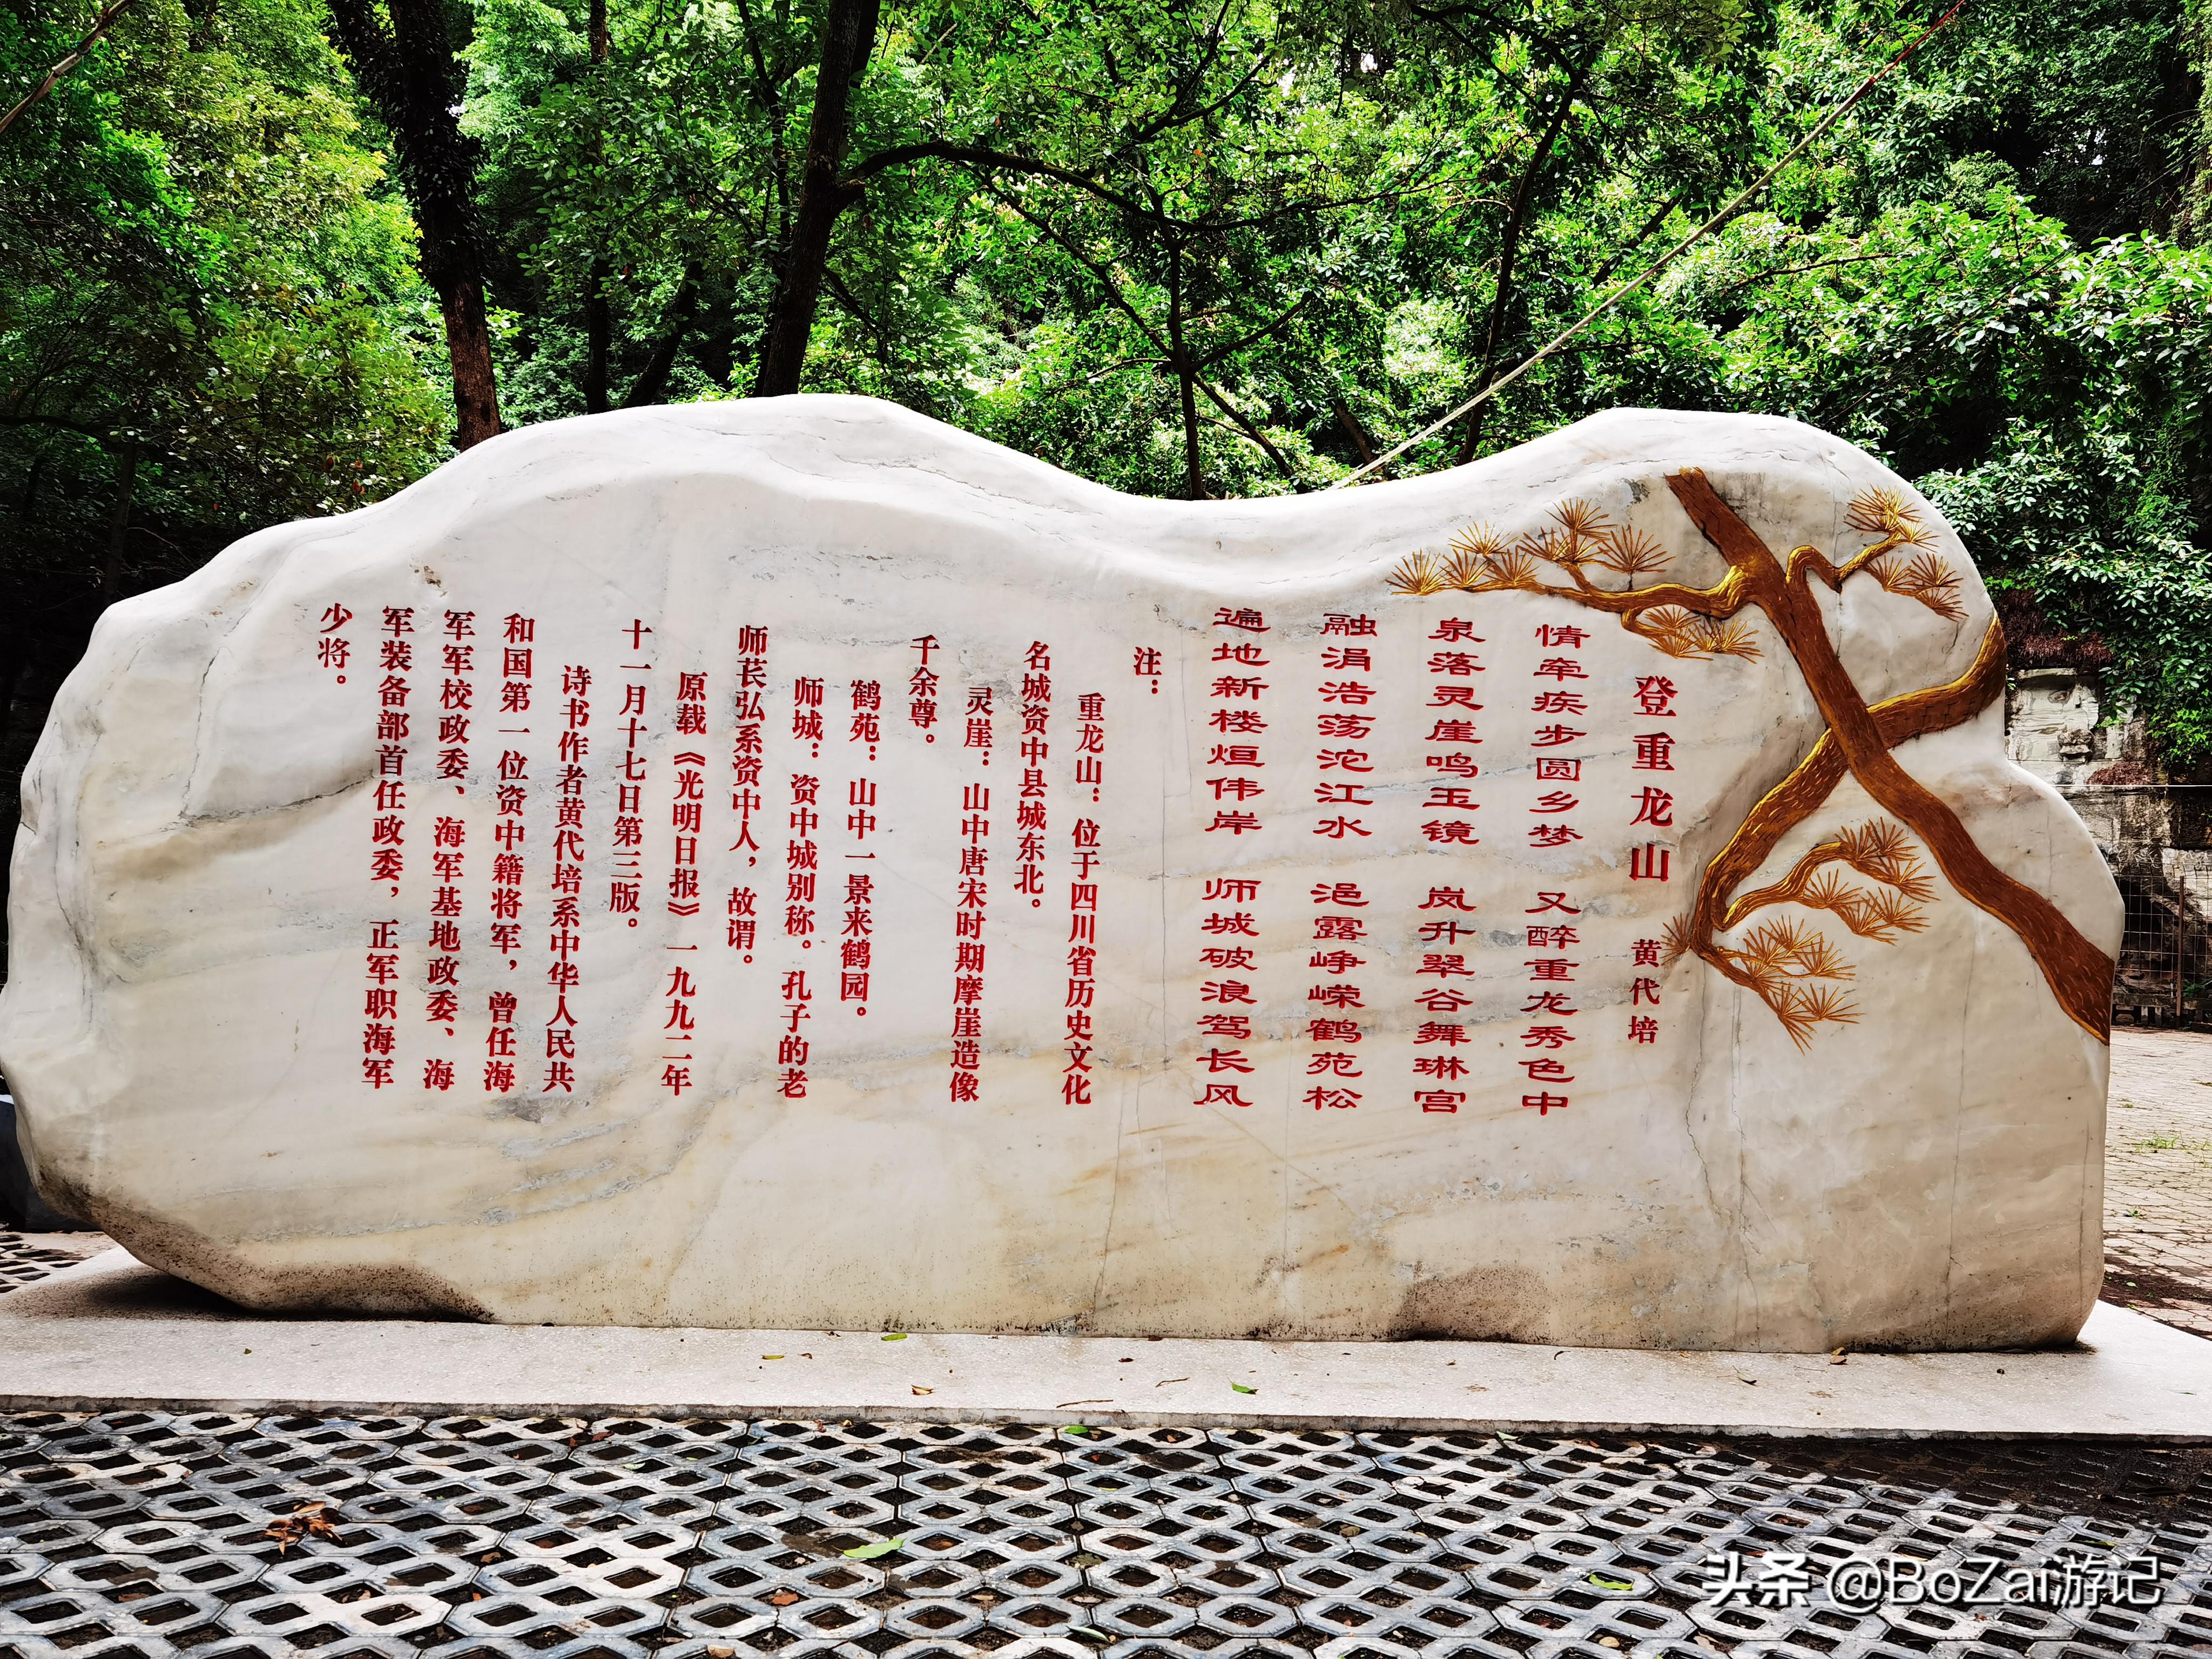 登重龙山 黄代培
情牵疾步圆乡梦 又醉重龙秀色中
泉落灵崖鸣玉镜 岚升翠谷舞琳宫
融涓浩荡沱江水 浥露峥嵘鹤苑松
遍地新楼烜伟岸 师城破浪驾长风
注：
重龙山：位于四川省历史文化
名城资中县城东北。
灵崖：山中唐宋时期摩崖造像
千余尊。
鹤苑：山中一景来鹤园。
师城：资中城别称。孔子的老
师苌弘系资中人，故谓。
原载《光明日报》一九九二年
十一月十七日第三版。
诗书作者黄代培系中华人民共
和国第一位资中籍将军，曾任海
军军校政委、海军基地政委、海
军装备部首任政委，正军职海军
少将。
头条 @BoZai游记